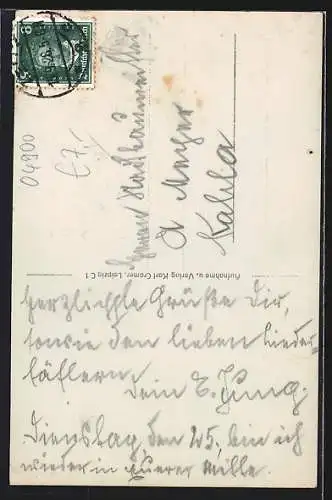 Herrn Stadtbaumeister
A Meyer
Kahla
Aufnahme u. Verlag Karl Cramer, Leipzig C 1
04900
£7,-
Herzlichste Grüße Dir,
sowie den lieben Lieder-
täflern.
Dein E. Jung.
Dienstag den 25. bin ich
wieder in Eurer Mitte.